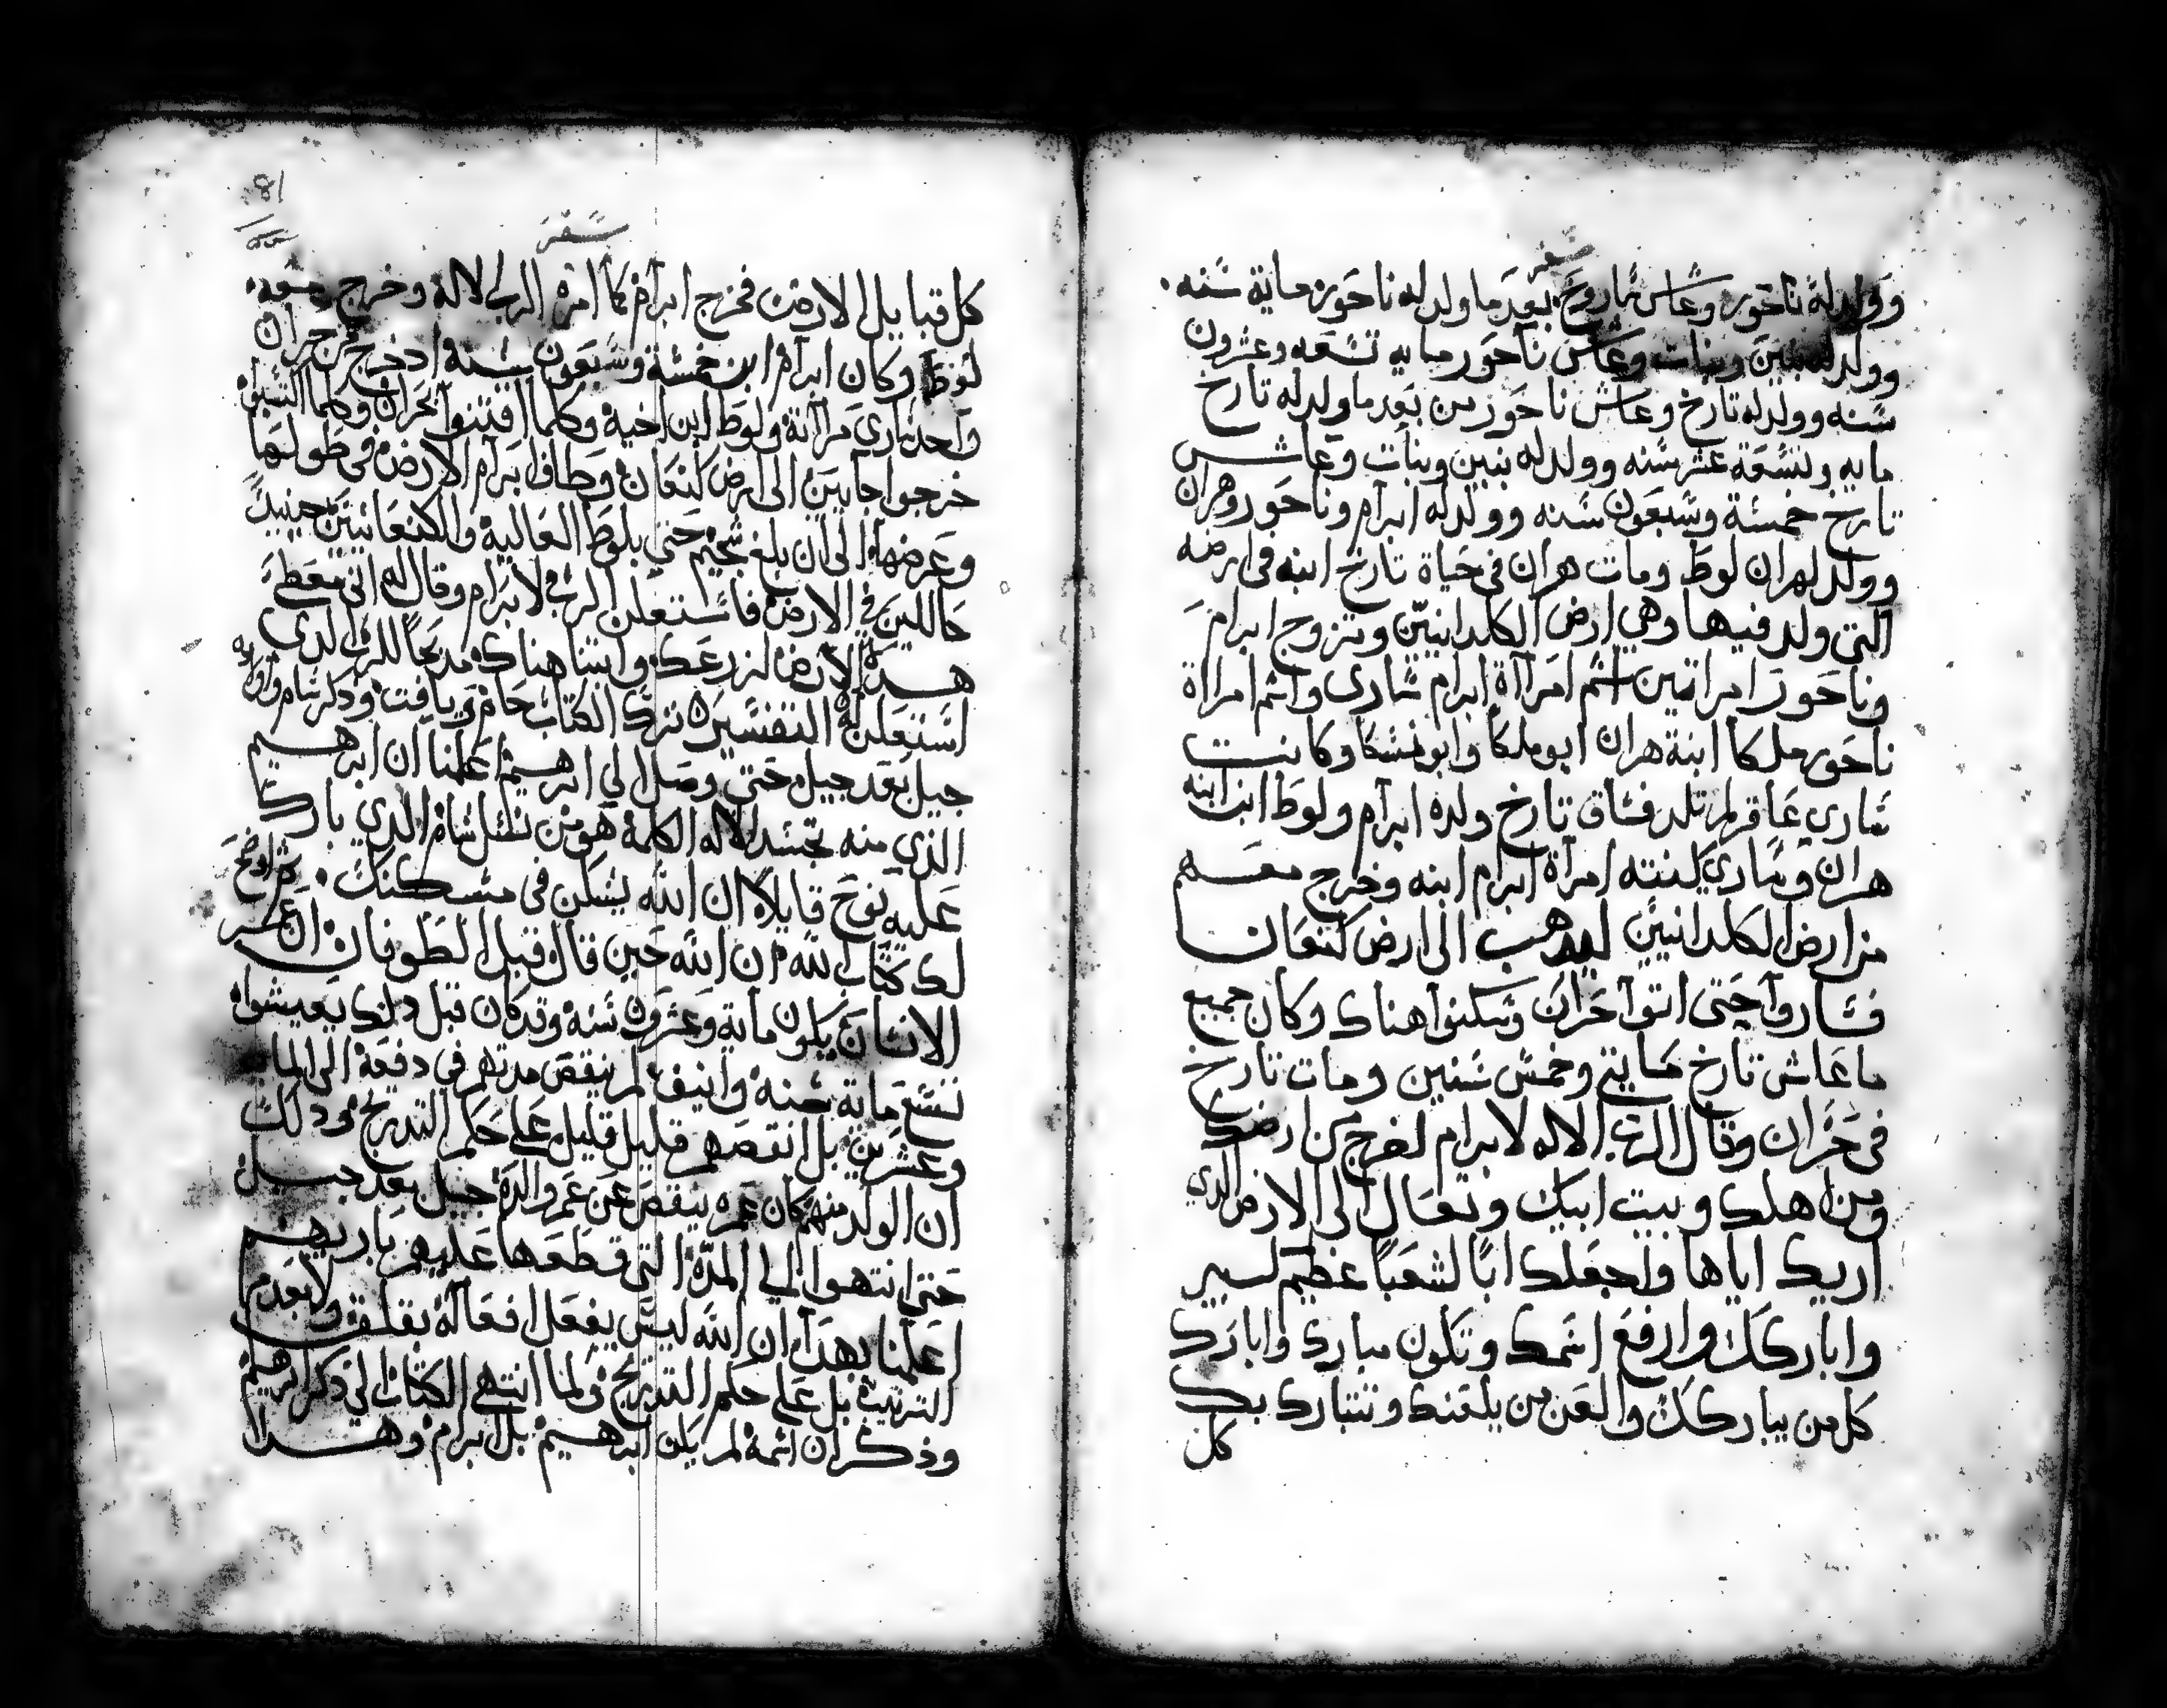 سفر
وولد له ناحور وعاش ساروخ بعد ما ولد له ناحور ماية سنه
وولد له بنين وبنات وعاش ناحور مايه تسعه وعشرون
سنه وولد له تارخ وعاش ناحور من بعد ما ولد له تارخ
مايه وتسعة عشر سنه وولد له بنين وبنات وعاش
تارخ خمسة وسبعون سنه وولد له ابرام وناحور وهران
وولد لهران لوط ومات هران في حياة تارخ ابنه في ارضه
التي ولد فيها وهي ارض الكلدانيين وتزوج ابرام
وناحور امراتين اسم امراة ابرام ساري واسم امراة
ناحور ملكا ابنة هران ابو ملكا وابو نسكا وكانت
ساري عاقر لم تلد فساق تارخ ولده ابرام ولوط ابن ابنه
هران وساري كنته امراة ابرام ابنه وخرج معهم
من ارض الكلدانيين ليدهب الى ارض كنعان
فساروا حتى اتوا حران وسكنوا هناك وكان جميع
ما عاش تارخ مايتي وخمس سنين ومات تارخ
في حران وقال الرب الاله لابرام اخرج من ارضك
ومن اهلك وبيت ابيك وتعال الى الارض الدي
اريك اياها واجعلك ابا لشعبا عظيم كبير
واباركك وارفع اسمك وتكون مبارك وابارك
كل من يباركك والعن من يلعنك وتتبارك بك
كل
81
سفر
كل قبايل الارض فخرج ابرام كما امره الرب الاله وخرج معه
لوط وكان ابرام ابن خمسة وسبعون سنة اد خرج من حران
واخد ساري مراته ولوط ابن اخيه وكلما اقتنوا بحران وكلما
خرجوا جايين الى ارض كنعان وطاف ابرام الارض في طولها
وعرضها الى ان بلغ شخيم حتى بلوط العالية والكنعانيين حينيد
حاللين في الارض فاستعلن الرب لابرام وقال له اني معطي
هده الارض لزرعك وابتنا هناك مدبحا للرب الدي
استعلن له التفسير ترك الكتاب حام ويافت ودكر سام واولاده
جيل بعد جيل حتى وصل الي ابرهيم اعلمنا ان ابرهيم
الذي منه تجسد الاله الكلمة هو من نسل سام الدي بارك
عليه نوح قايلا ان الله يسكن في مسكنك ثم اوضح
لك كتاب الله ان الله حين قال قبل الطوفان ان عمر
الانسان يكون ماية وعشرون سنه وقد كان قبل دلك يعيشوا
تسع ماية سنه وانيف لم ينقص مدتهم في دفعة الى الماية
وعشرين بل انقصهم قليل قليل على حكم التدريج ودلك
ان الولد منهم كان عمره ينقص عن عمر والده جيل بعد جيل
حتى انتهوا الي المدة التي قطعها عليهم باريهم
اعلمنا بهدا ان الله ليس يفعل افعاله بقلق ولا بعدم
الترتيب بل على حكم التدريج ولما انتهى الكتاب الى ذكر ابرهيم
وذكر ان اسمه لم يكن ابرهيم بل ابرام وهدا